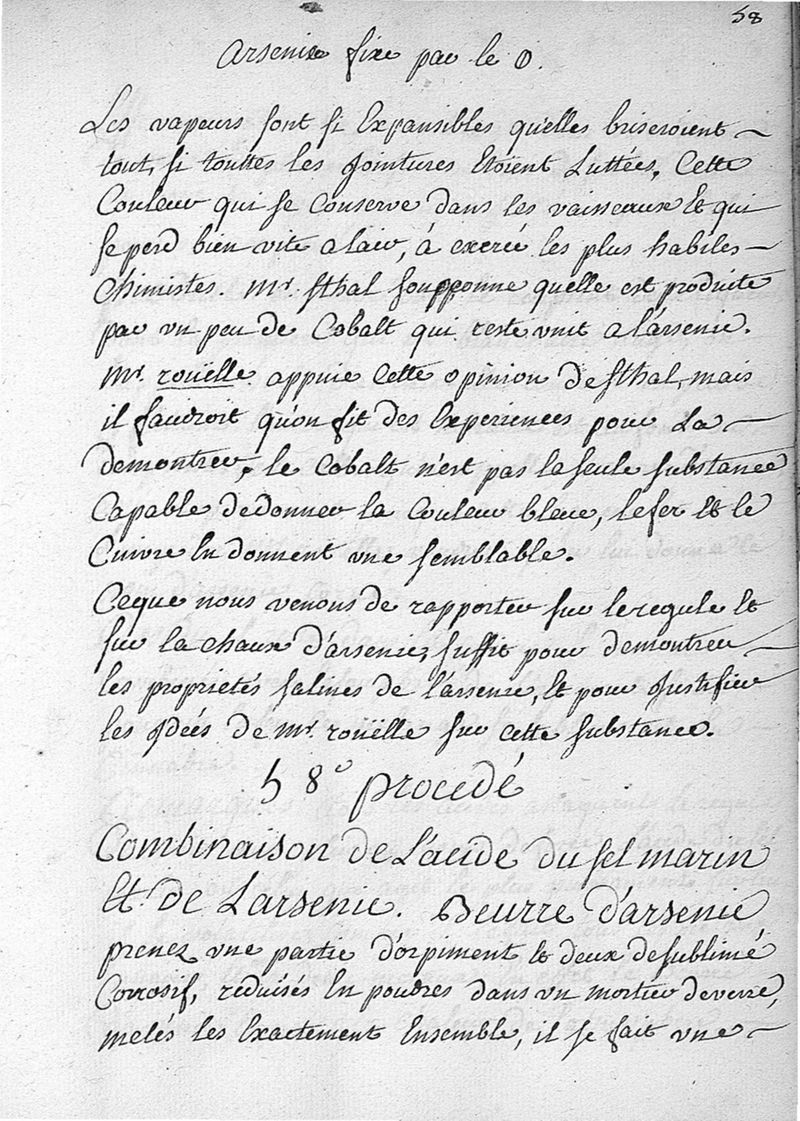 58
arsenic fixé par le ⦶.
Les vapeurs sont si Expansibles qu'elles briseroient
tout, si touttes les jointures Etoient Luttées. Cette
Couleur qui se conserve dans les vaisseaux Et qui
se perd bien vite a lair, à exercé les plus habiles
Chimistes. Mr. sthal soupçonne quelle est produite
par un peu de Cobalt qui reste unit a l'arsenic.
Mr. rouëlle appuie cette opinion de sthal, mais
il faudroit qu'on fit des Experiences pour La
demontrer, le Cobalt n'est pas la seule substance
Capable dedonner la Couleur bleue, lefer Et le
Cuivre En donnent une semblable.
Ceque nous venons de rapporter sur leregule Et
sur la chaux d'arsenic, suffit pour demontrer
les proprietés salines de l'arsenic, Et pour justifier
les jdeés de Mr. rouëlle sur cette substance.
58e procedé
Combinaison de L'acide du sel marin
Et de L'arsenic. Beurre d'arsenic
prenez une partie d'orpiment Et deux desublimé
Corrosif, reduisés En poudres dans un mortier deverre,
melés les Exactement Ensemble, il se fait une